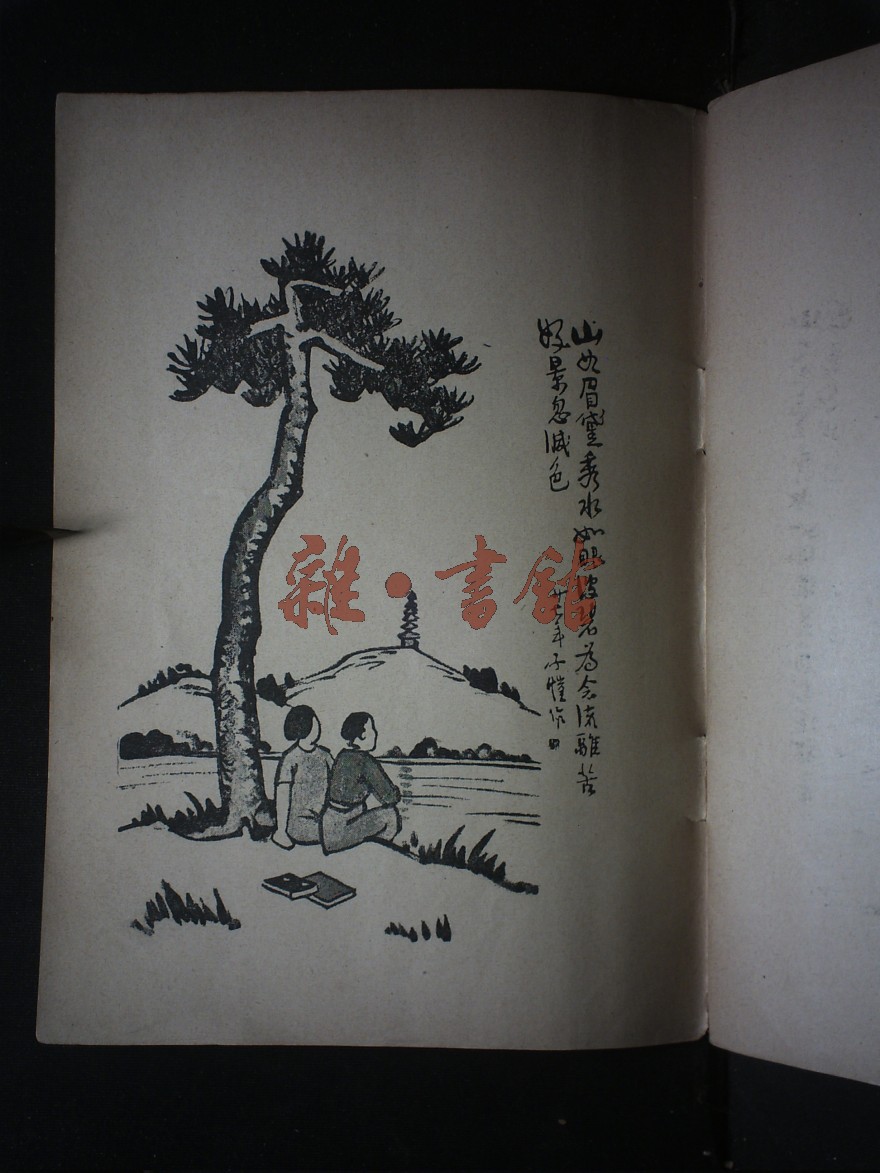 山如眉黛秀水如眼波碧為念流離苦
好景忽減色
廿七年子愷作
雜·書館